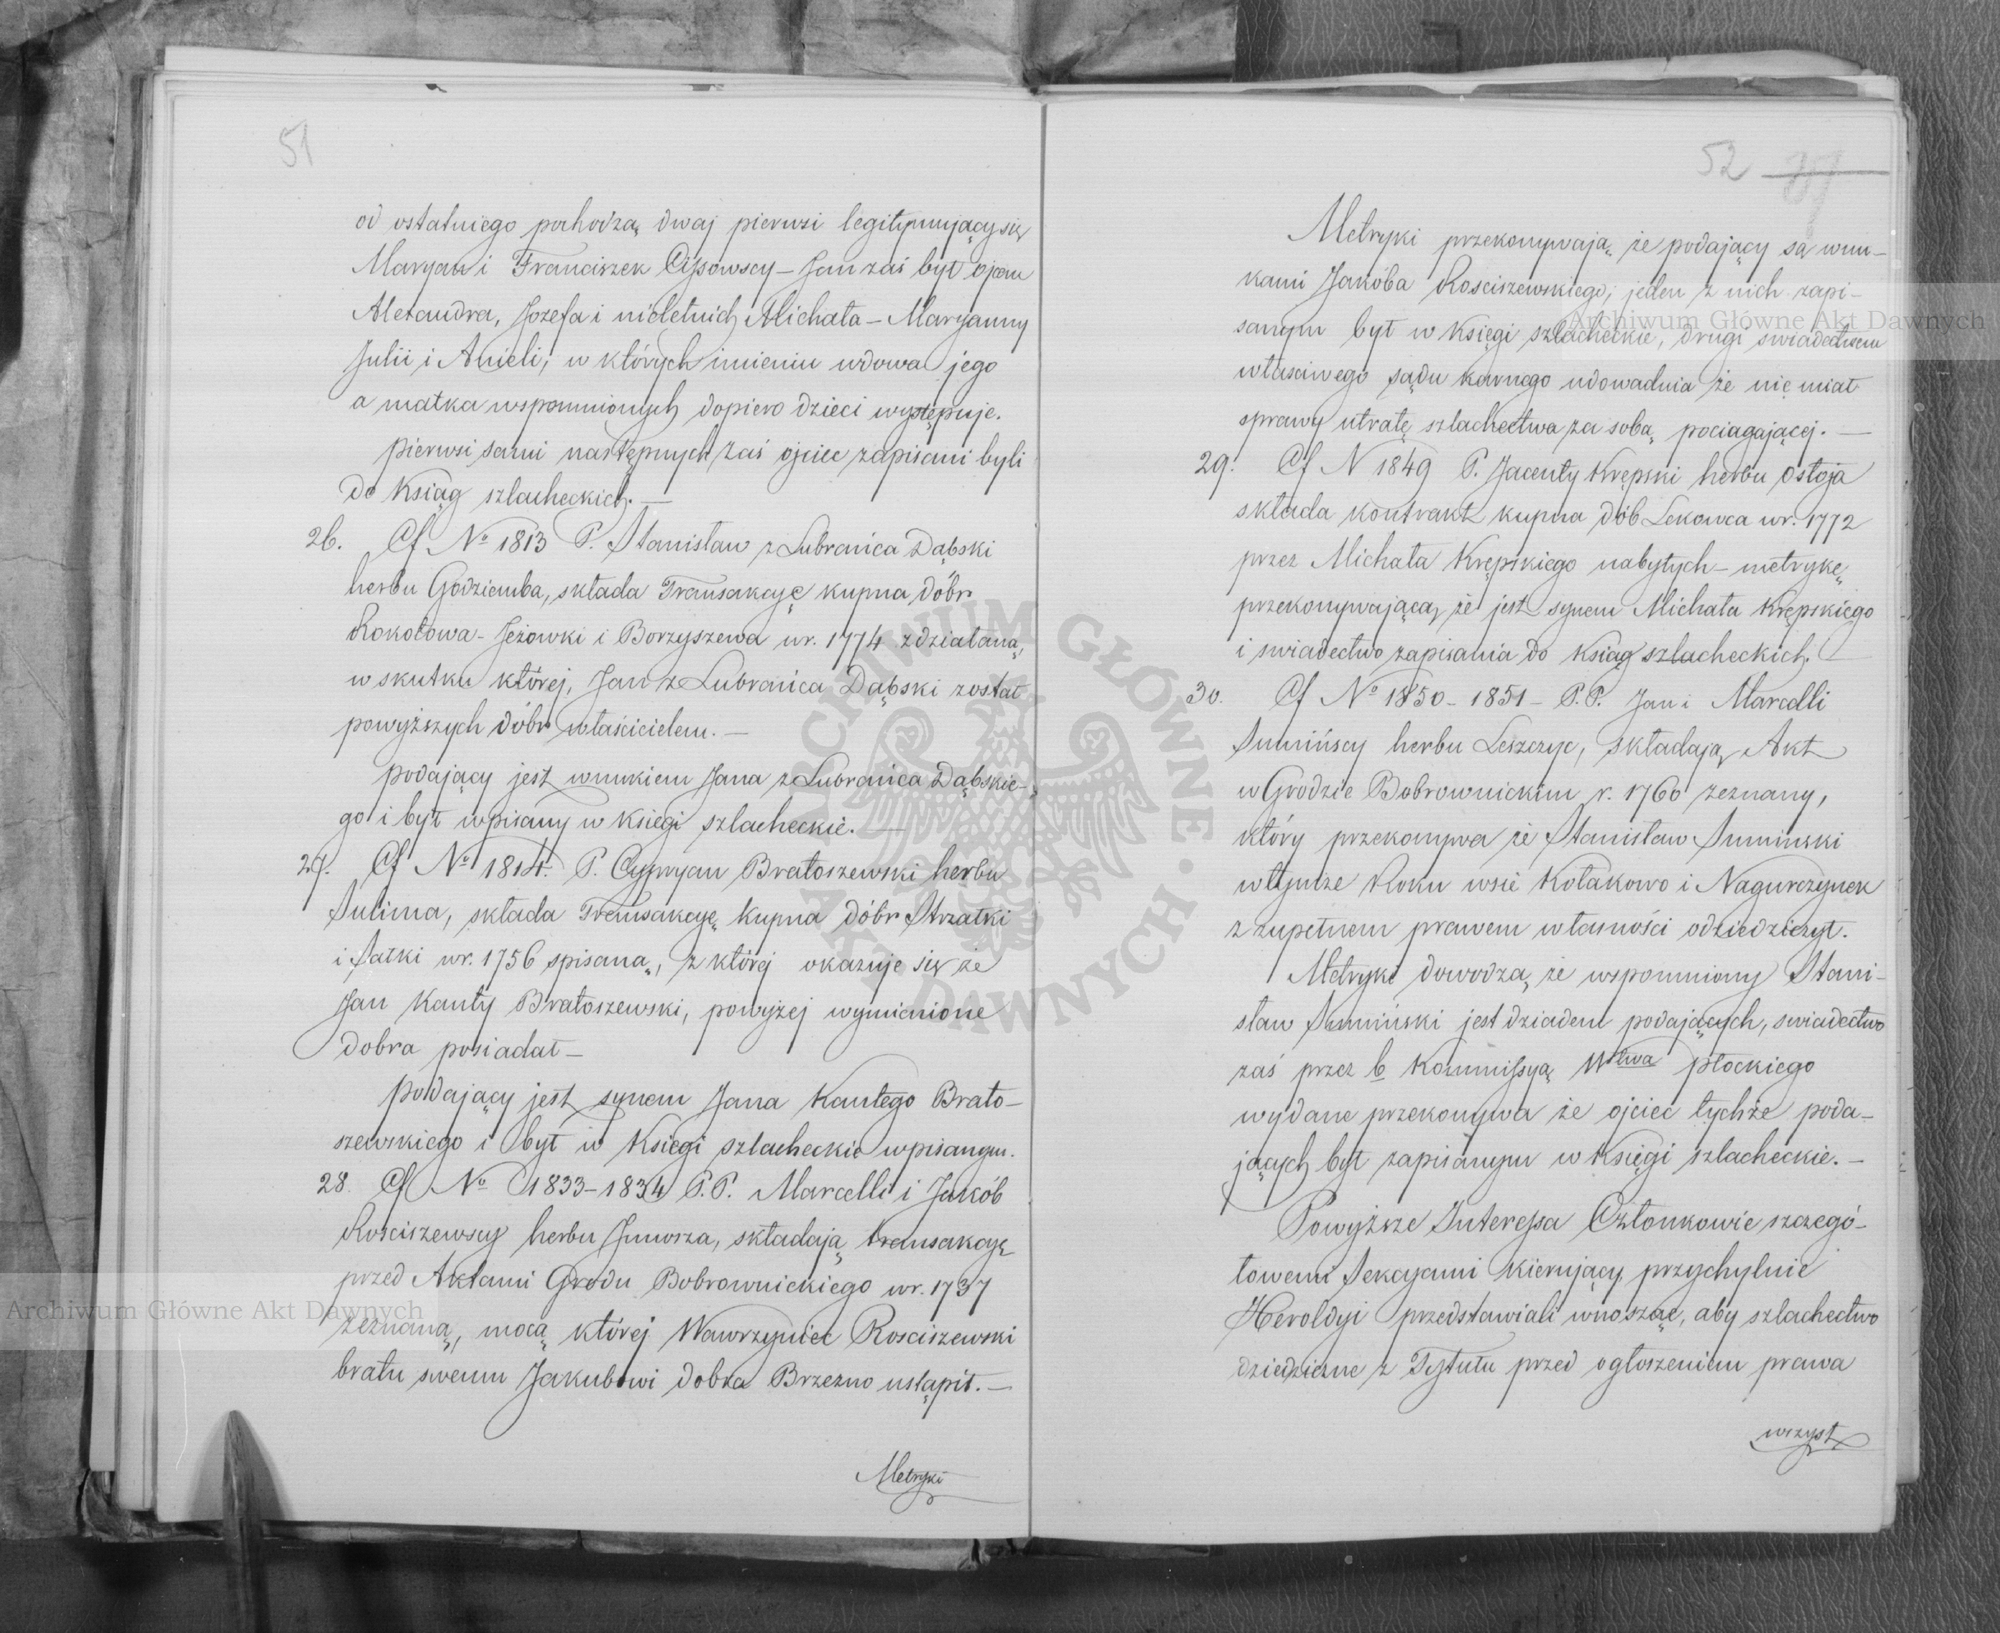 51
od ostatniego pochodzą dwaj pierwsi legitymujący się
Maryan i Franciszek Cissowscy – Jan zaś był ojcem
Alexandra, Jozefa i nieletnich Michała – Maryanny
Julii i Anieli, w których imieniu wdowa jego
a matka wspomnionych dopiero dzieci występuje.
Pierwsi sami następnych zaś ojciec zapisani byli
do Ksiąg szlacheckich. —
26. Cf No 1813 P. Stanisław z Lubrańca Dąbski
herbu Godziemba, składa Transakcyę kupna dóbr
Rokotowa - Jeżowki i Borzyszewa w r. 1774 zdziałaną,
w skutku której, Jan z Lubrańca Dąbski został
powyższych dóbr właścicielem. —
Podający jest wnukiem Jana z Lubrańca Dąbskie-
go i był wpisany w księgi szlacheckie. —
27. Cf No 1814. P. Cypryan Bratoszewski herbu
Sulima, składa Transakcyę kupna dóbr Strzałki
i Sałki w r. 1756 spisaną, z której okazuje się że
Jan Kanty Bratoszewski, powyżej wymienione
dobra posiadał —
Podający jest synem Jana Kantego Brato-
szewskiego i był w Księgi szlacheckie wpisanym.
28. Cf No 1833–1834 P.P. Marcelli i Jakób
Rosciszewscy herbu Junosza, składają transakcyę
przed Aktami Grodu Bobrownickiego w r. 1737
zeznaną, mocą której Wawrzyniec Rosciszewski
bratu swemu Jakubowi dobra Brzezno ustąpił. —
Metryki
52
Metryki przekonywają że podający są wnu-
kami Jakóba Rosciszewskiego, jeden z nich zapi-
sanym był w Księgi szlacheckie, drugi swiadectwem
własciwego sądu karnego udowadnia że nie miał
sprawy utratę szlachectwa za sobą pociagającej. —
29. Cf N 1849 P. Jacenty Krępski herbu Ostoja
składa kontrakt kupna dób Lekowca w r. 1772
przez Michała Krępskiego nabytych – metrykę
przekonywającą że jest synem Michała Krępskiego
i swiadectwo zapisania do ksiąg szlacheckich. —
30. Cf No 1850 - 1851 – P.P. Jan i Marcelli
Sumińscy herbu Leszczyc, składają Akt
w Grodzie Bobrownickim r. 1760 zeznany,
który przekonywa że Stanisław Suminski
w tymże Roku wsie Kołakowo i Nagurczynek
z zupełnem prawem własności odziedziczył.
Metryki dowodzą że wspomniony Stani-
sław Sumiński jest dziadem podających, swiadectwo
zaś przez b Kommissyą Wztwa płockiego
wydane przekonywa że ojciec tychże poda-
jących był zapisanym w Księgi szlacheckie. —
Powyższe Interessa Członkowie szczegó-
łowemi Sekcyami kierujący przychylnie
Heroldyi przedstawiali wnosząc, aby szlachectwo
dziedziczne z Tytułu przed ogłoszeniem prawa
wszyst
Archiwum Główne Akt Dawnych
Archiwum Główne Akt Dawnych
ARCHIWUM GŁÓWNE AKT DAWNYCH